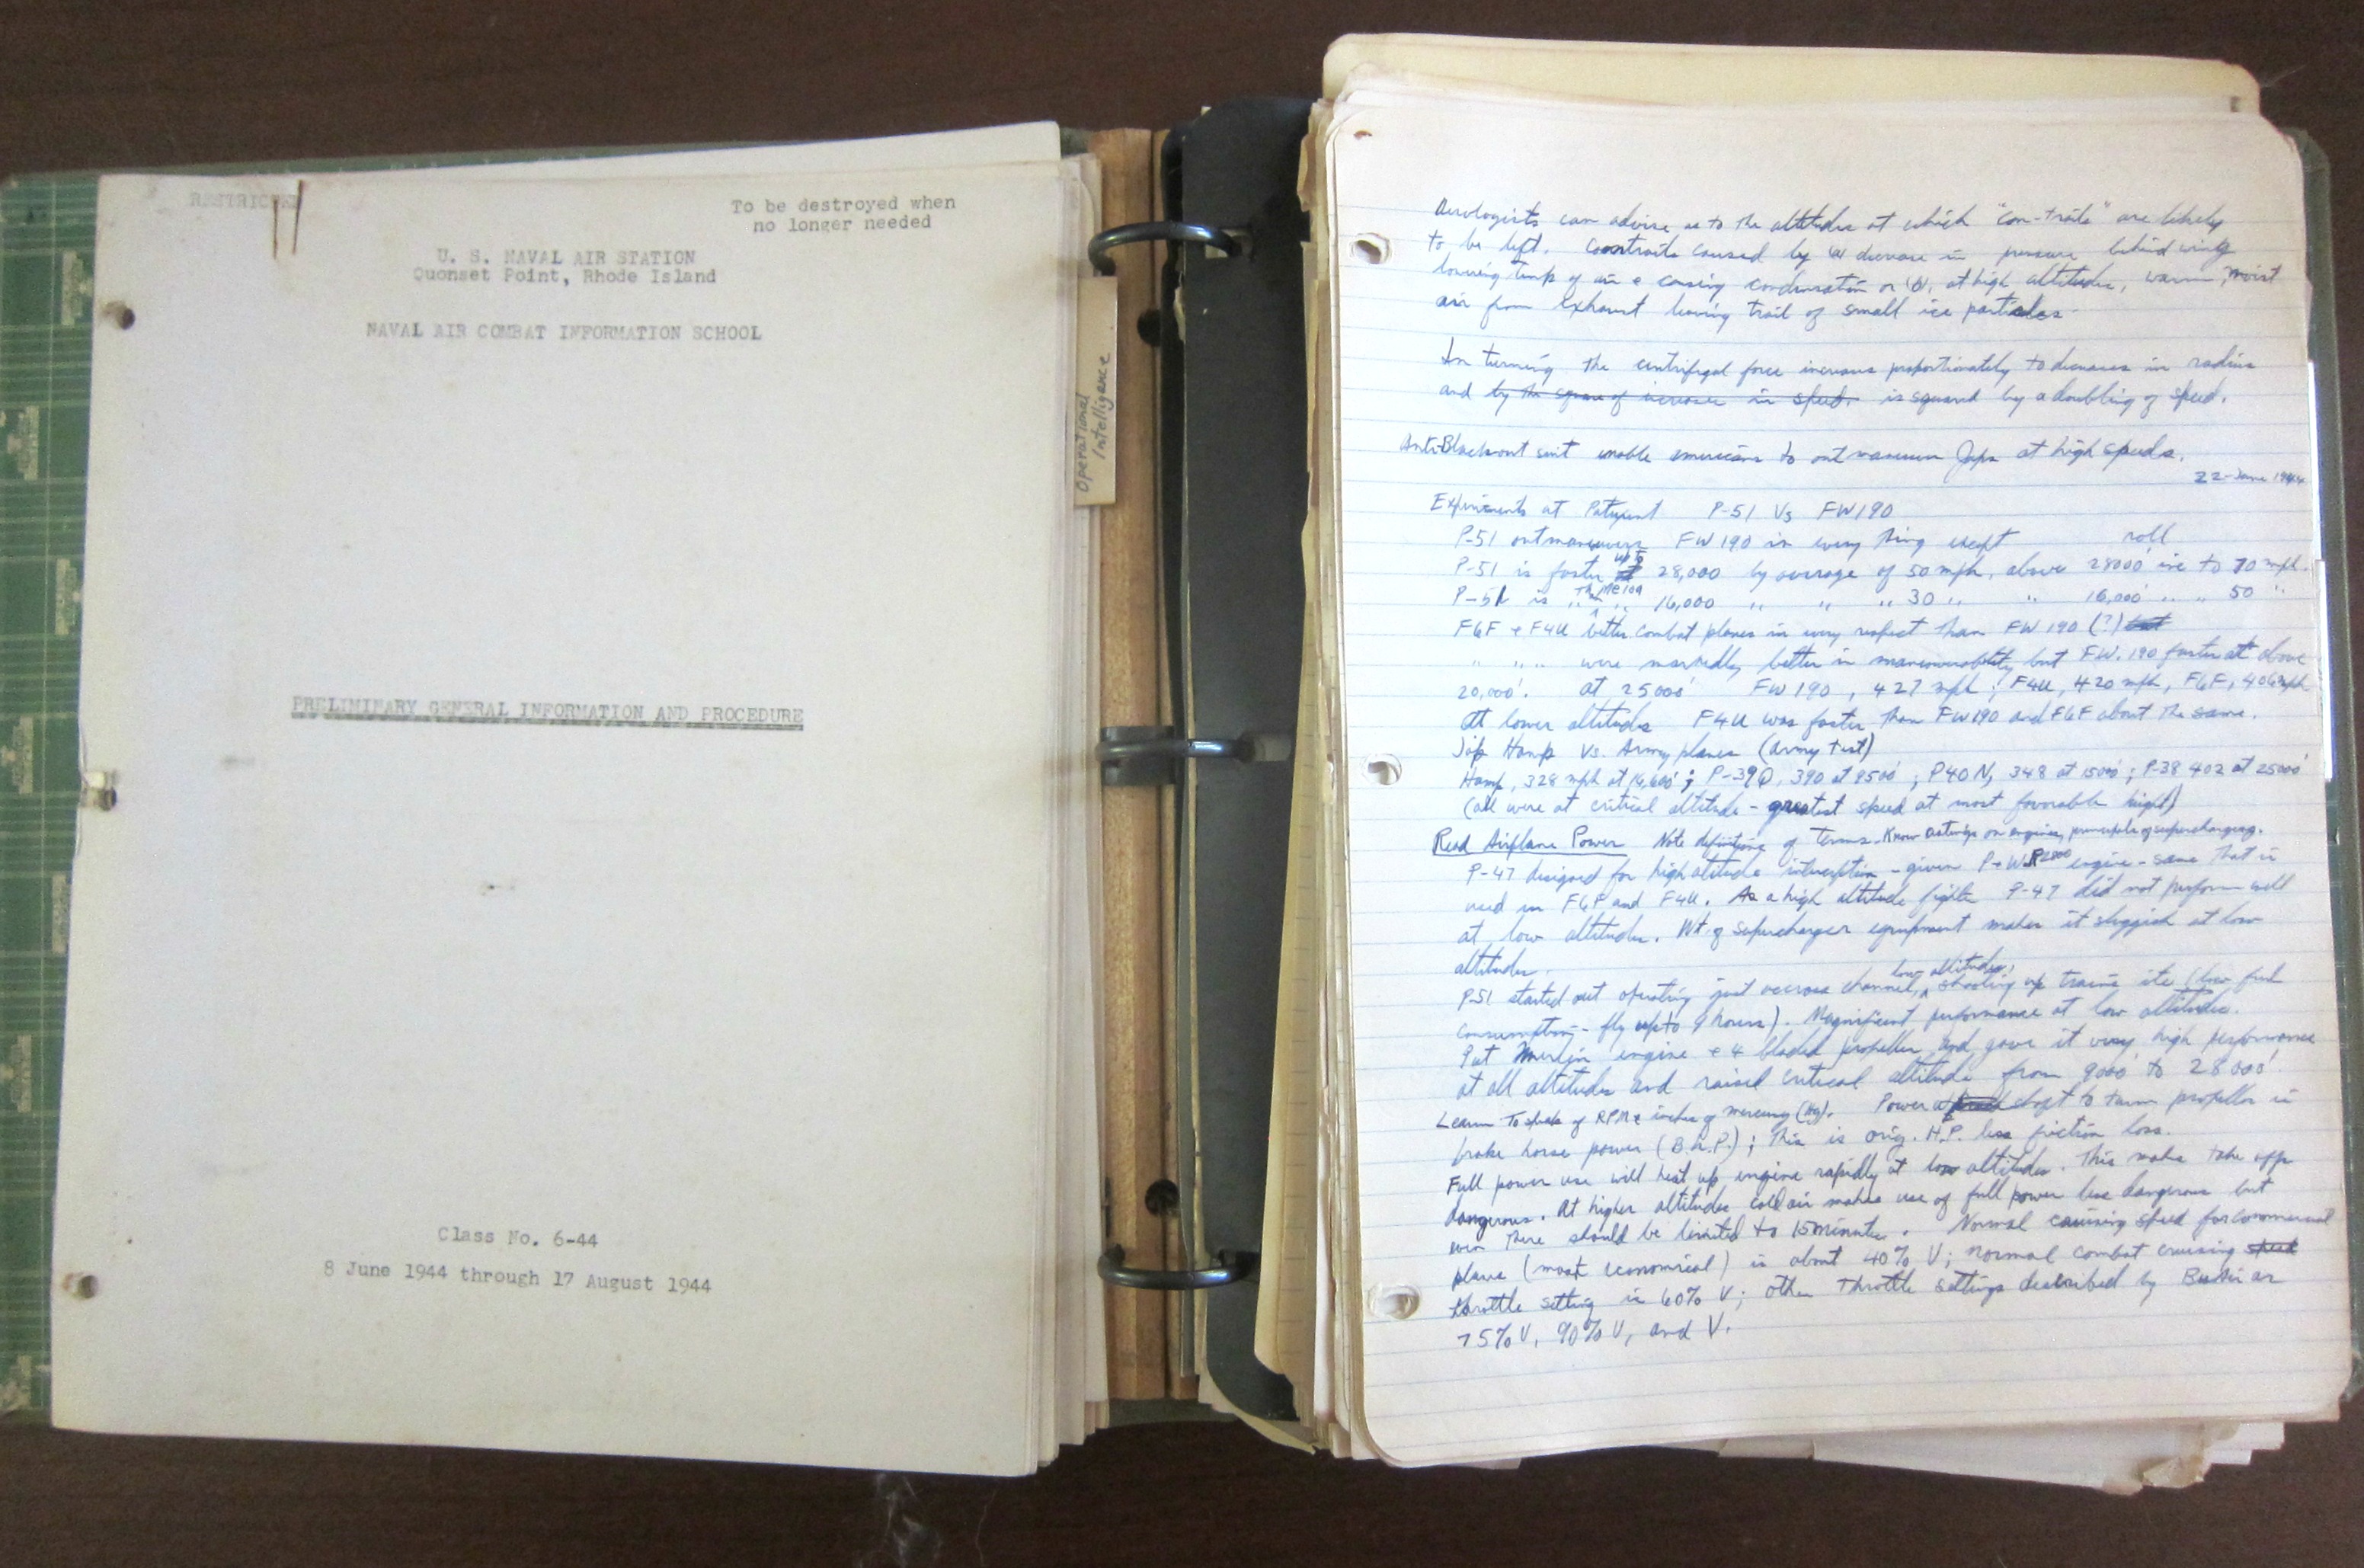 RESTRICTED
To be destroyed when
no longer needed
U. S. NAVAL AIR STATION
Quonset Point, Rhode Island
NAVAL AIR COMBAT INFORMATION SCHOOL
PRELIMINARY GENERAL INFORMATION AND PROCEDURE
Class No. 6-44
8 June 1944 through 17 August 1944
Operational
Intelligence
Aerologists can advise as to the altitudes at which "con-trails" are likely
to be left. Contrails caused by (a) decrease in pressure behind wing
lowering temp of air & causing condensation or (b), at high altitudes, warm, moist
air from exhaust leaving trail of small ice particles
In turning the centrifugal force increases proportionately to decreases in radius
and by the square of increases in speed. is squared by a doubling of speed.
Anti-Blackout suit enable americans to outmaneuver Japs at high speeds.
22-June 1944
Experiments at Patuxent P-51 Vs FW190
P-51 outmaneuvers FW 190 in every thing except roll
P-51 is faster up to 28,000 by average of 50 mph, above 28000' inc to 70 mph.
P-51 is " 16,000 " " " 30 " " 16,000' " " 50 "
F6F & F4U better combat planes in every respect than FW 190 (?) but
" " " were markedly better in maneuverability but FW.190 faster at above
20,000'. at 25000' FW 190, 427 mph; F4U, 420 mph, F6F, 406 mph
At lower altitudes F4U was faster than FW190 and F6F about the same.
Jap Hamp Vs. Army planes (Army test)
Hamp, 328 mph at 16,600'; P-39Q, 390 at 9500'; P40N, 348 at 15000'; P-38 402 at 25000'
(all were at critical altitude - greatest speed at most favorable height)
Read Airplane Power Note definitions of terms. Know on engines, principle of supercharging.
P-47 designed for high altitude interception - given P+W R2800 engine - same that is
used in F6F and F4U. As a high altitude fighter P-47 did not perform well
at low altitude. Wt. of supercharger equipment makes it sluggish at low
altitudes.
P-51 started out operating just accross channel, low altitudes, shooting up trains etc (low fuel
consumption - fly up to 9 hours). Magnificent performance at low altitudes.
Put Merlin engine & 4 bladed propeller and gave it very high performance
at all altitudes and raised critical altitude from 9000' to 28000'.
Learn To speak of RPM & inches of mercury (Hg). Power shaft to turn propellor is
brake horse power (B.H.P.); this is orig. H.P. less friction loss.
Full power use will heat up engine rapidly at low altitudes. This makes take off
dangerous. At higher altitudes cold air makes use of full power less dangerous but
even there should be limited to 15 minutes. Normal cruising speed for commercial
plane (most economical) is about 40% V; normal combat cruising speed
throttle setting is 60% V; other throttle settings described by as
75% V, 90% V, and V.